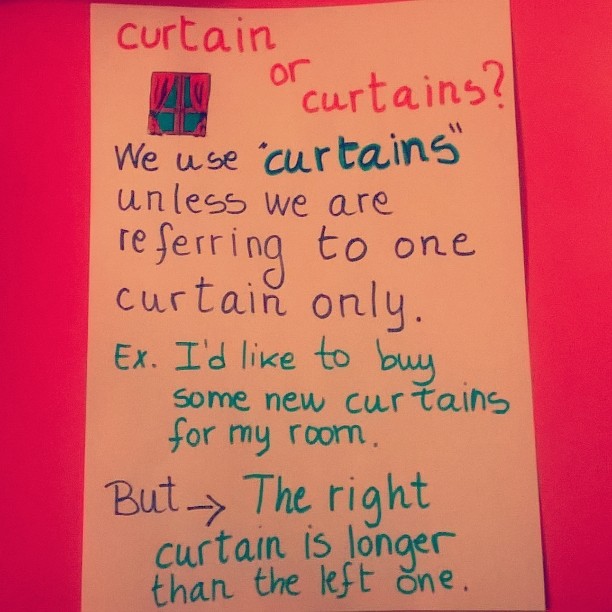 curtain
or
curtains?
We use "curtains"
unless we are
referring to one
curtain only.
Ex. I'd like to buy
some new curtains
for my room.
But → The right
curtain is longer
than the left one.